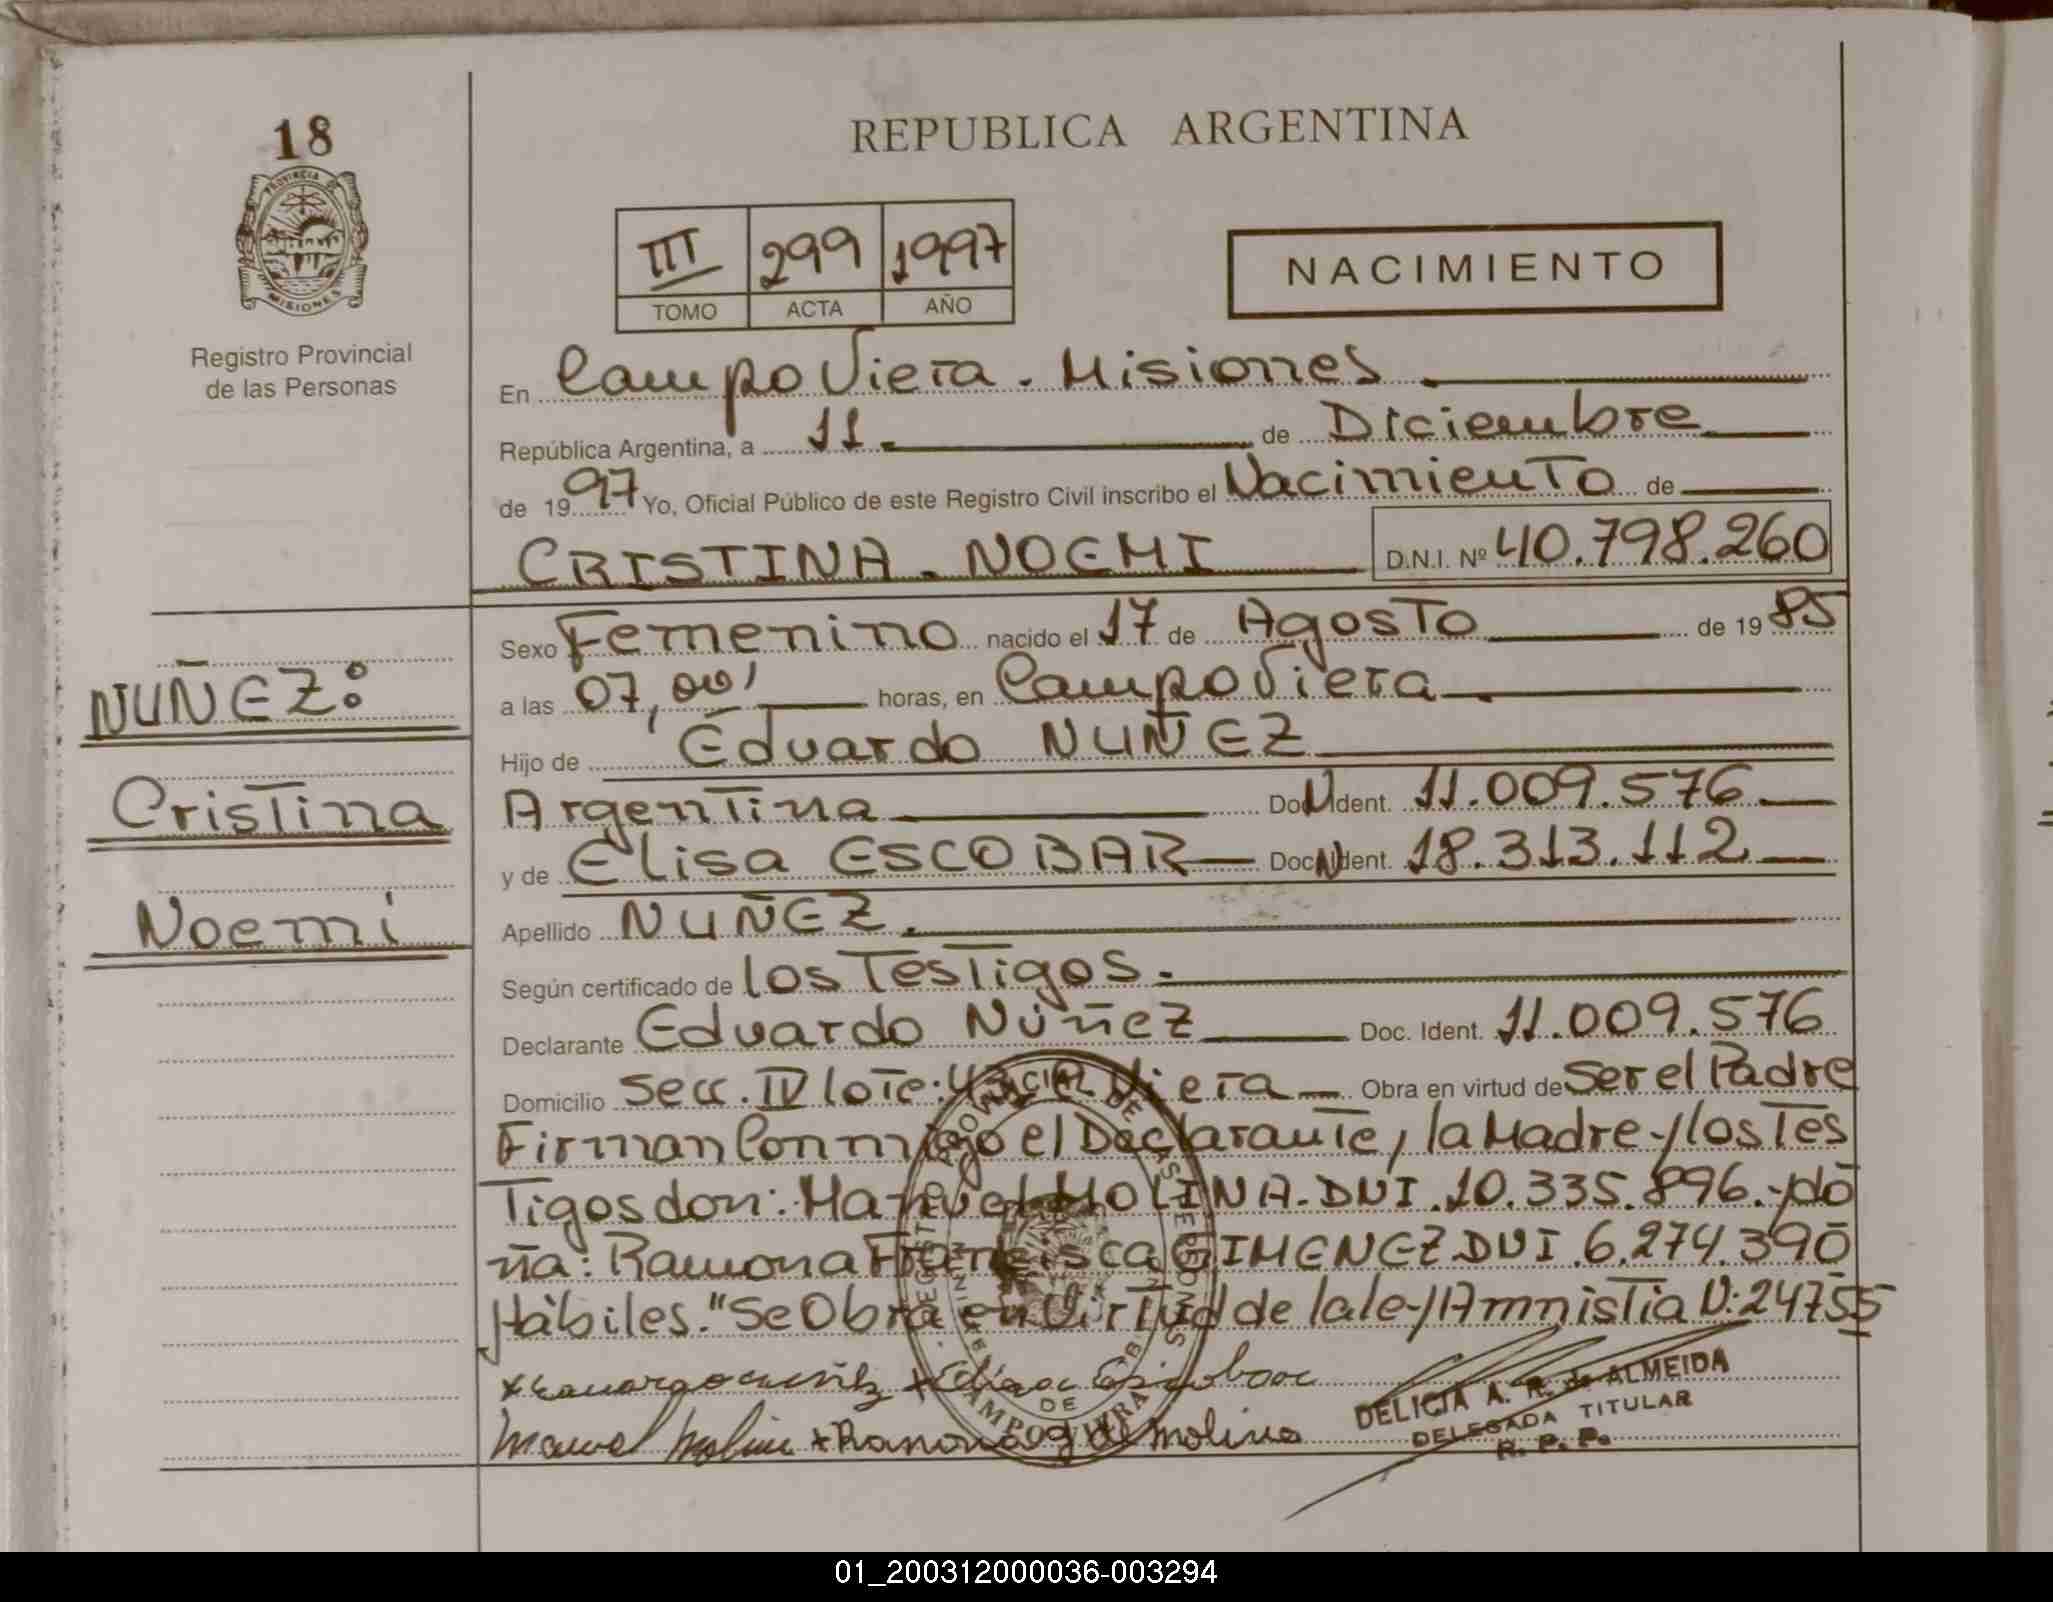 18
PROVINCIA DE
MISIONES
Registro Provincial
de las Personas
NUÑEZ:
Cristina
Noemi
REPUBLICA ARGENTINA
III 299 1997
TOMO ACTA AÑO
NACIMIENTO
En Campo Viera - Misiones
República Argentina, a 11 de Diciembre
de 1997 Yo, Oficial Público de este Registro Civil inscribo el Nacimiento de
CRISTINA - NOEMI D.N.I. Nº 40.798.260
Sexo Femenino nacido el 17 de Agosto de 1985
a las 07,00' horas, en Campo Viera
Hijo de Eduardo NUÑEZ
Argentina Doc. Ident. 11.009.576
y de Elisa ESCOBAR Doc. Ident. 18.313.112
Apellido NUÑEZ.
Según certificado de los Testigos.
Declarante Eduardo Núñez Doc. Ident. 11.009.576
Domicilio Secc. IV lote: Viera Obra en virtud de Ser el Padre
Firman Conmigo el Declarante, la Madre y los Tes
Tigos don: Manuel MOLINA. DNI. 10.335.896. y do
ña: Ramona Francisca GIMENEZ DNI. 6.274.390
Hábiles. "Se Obra en Virtud de la ley Amnistia N: 24755
Escobar
Manuel Molina Ramona g de Molina
DELICIA A. R. de ALMEIDA
DELEGADA TITULAR
R. P. P.
01_200312000036-003294